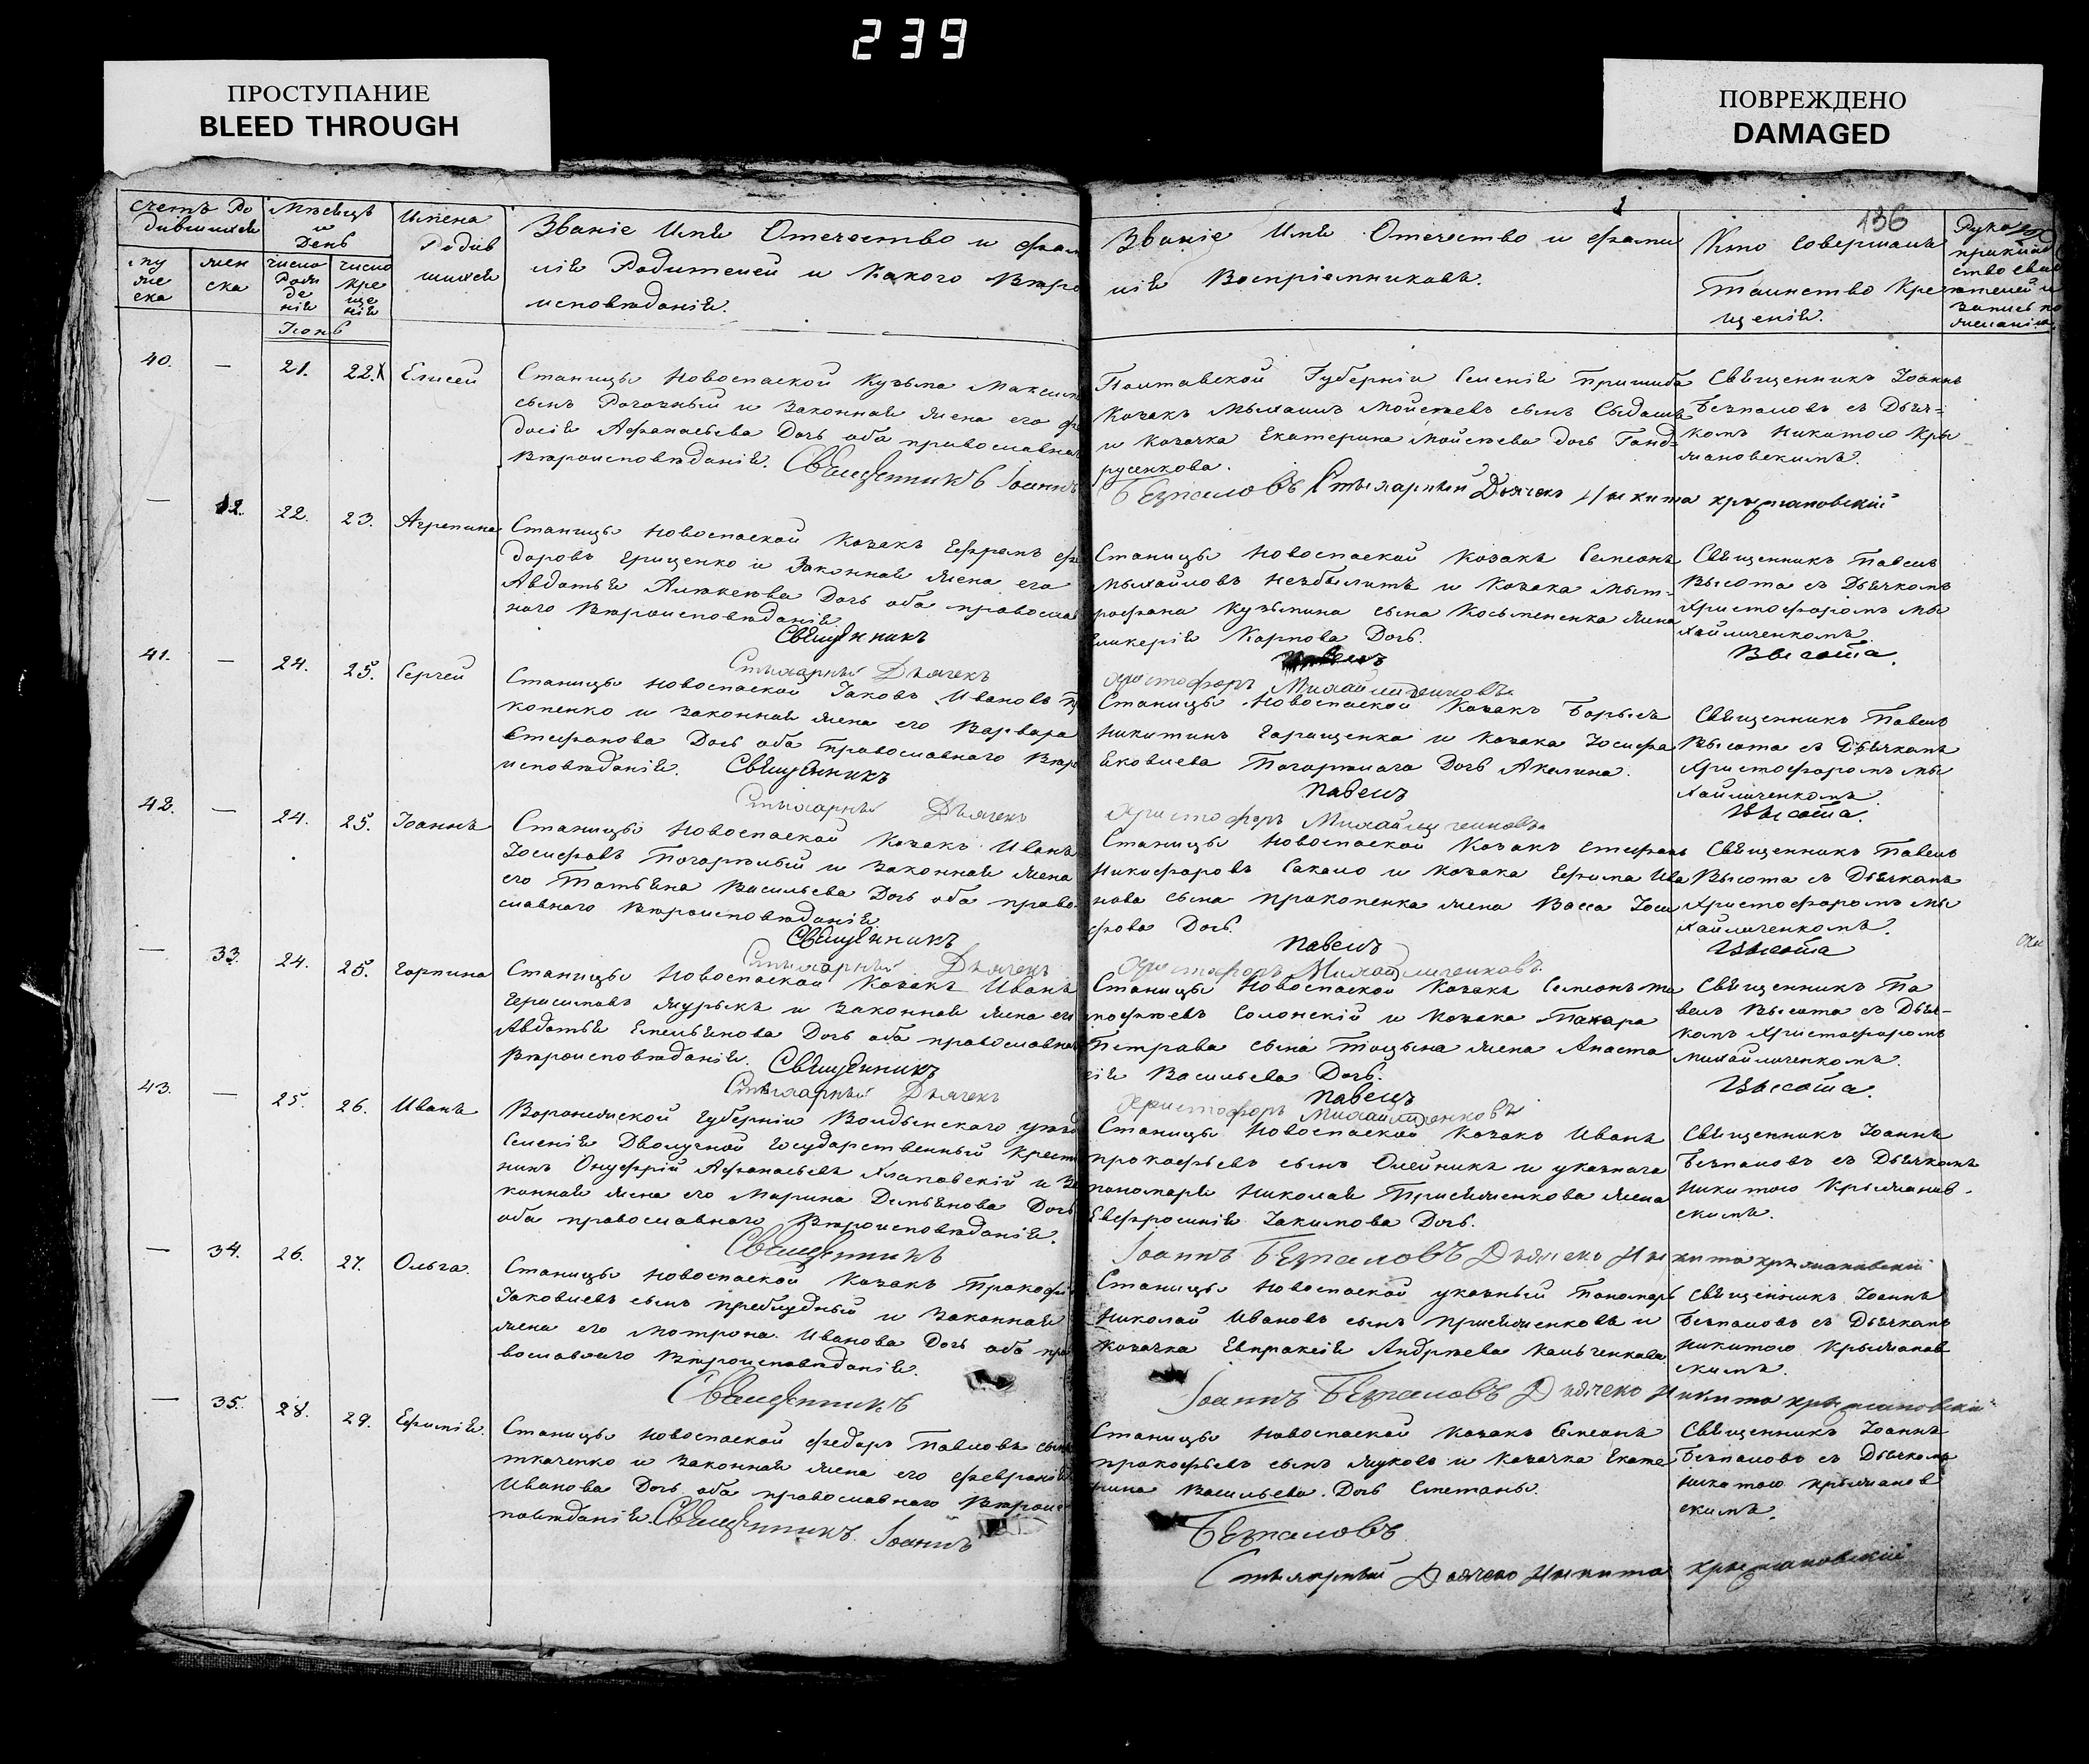 239
ПРОСТУПАНИЕ
BLEED THROUGH
ПОВРЕЖДЕНО
DAMAGED
136
Счетъ Ро
дившихся
Мѣсяцъ
и
День
Имена
Родив
шихся
Званіе Имя Отечество и фами
лія Родителей и Какого Вѣро
исповѣданія.
му
же
ска
жен
ска
число
Рож
де
нія
число
Кре
ще
нія
Іюнь
Званіе Имя Отечество и фами
лія Воспріемниковъ.
Кто Совершалъ
Таинство Кре
щенія.
Руко
40. — 21. 22. Елисей
Станицы Новоспаской Кузьма Максим
сынъ Рогочный и Законная жена его Фе
досія Афанасьева Дочь оба православна
Вѣроисповѣданія. Священникъ Іоаннъ
Полтавской Губерніи Селенія
Козакъ Мыхаилъ Мойсеевъ сынъ
и Козачка Екатерина Мойсеева дочь Ганд=
русенкова.
Безпаловъ Стихарный Дьячекъ Никита Крыжановскій
Священникъ Іоаннъ
Безпаловъ съ Дьяч=
комъ Никитою Кры
жановскимъ.
— 32. 22. 23. Агрепина
Станицы Новоспаской Козакъ Ефремъ Фе
доровъ Грищенко и Законная жена его
Авдотья Дочь оба православ
наго Вѣроисповѣданія.
Священникъ
Стихарный Дьячекъ
Станицы Новоспаской Козакъ Семенъ
Мыхайловъ и Козака Мыт-
рофана Кузьмина сына Косьмененка жена
Гликерія Карпова Дочь.
Христофоръ Михайличенковъ
Священникъ Павелъ
Высота съ Дьячкомъ
Христофоромъ Мы
хайличенкомъ.
Высота.
41. — 24. 25. Сергей
Станицы Новоспаской Іаковъ Ивановъ Пр
копенко и Законная жена его Варвара
Стефанова Дочь оба Православнаго Вѣро
исповѣданія. Священникъ
Стихарный Дьячекъ
Станицы Новоспаской Козакъ Борысъ
Никитинъ Геращенка и Козака Іосифа
Яковлева Погорѣлаго Дочь Акелина.
Павелъ
Христофоръ Михайличенковъ
Священникъ Павелъ
Высота съ Дьячкомъ
Христофоромъ Мы
хайличенкомъ.
Высота.
42. — 24. 25. Іоаннъ
Станицы Новоспаской Козакъ Иванъ
Іосифовъ Погорѣлый и Законная жена
его Татьяна Васильева Дочь оба право
славнаго Вѣроисповѣданія.
Священникъ
Стихарный Дьячекъ
Станицы Новоспаской Козакъ Стефанъ
Никифоровъ Сакало и Козака Ефима Ива
нова сына Прокопенка жена Васса Іоси
фова Дочь.
Павелъ
Христофоръ Михайличенковъ
Священникъ Павелъ
Высота съ Дьячкомъ
Христофоромъ Мы
хайличенкомъ.
Высота
— 33. 24. 25. Горпина
Станицы Новоспаской Козакъ Иванъ
Герасимовъ Журыкъ и Законная жена его
Авдотья Емельянова Дочь оба православна
Вѣроисповѣданія. Священникъ
Стихарный Дьячекъ
Станицы Новоспаской Козакъ Семенъ Ти
мофѣевъ Солонскій и Козака Макара
Петрова сына жена Анаста
сія Васильева Дочь.
Павелъ
Христофоръ Михайличенковъ
Священникъ Па
велъ Высота съ Дьяч-
комъ Христофоромъ
Михайличенкомъ.
Высота.
43. — 25. 26. Иванъ
Воронежской Губерніи Волдынскаго уѣзд
Селенія Дволучной Государственный Крестя
нинъ Онуфрій Афанасьевъ Хлаповскій и За
конная жена его Марина Демьянова Дочь
оба православнаго Вѣроисповѣданія.
Священникъ
Станицы Новоспаской Козакъ Иванъ
Прокофьевъ сынъ Олейникъ и указнаго
пономаря Николая Присяженкова жена
Евфросинія Іакимова Дочь.
Іоаннъ Безпаловъ Дьячекъ Никита Крыжановскій
Священникъ Іоаннъ
Безпаловъ съ Дьячкомъ
Никитою Крыжанов-
скимъ.
— 34. 26. 27. Ольга.
Станицы Новоспаской Козакъ Прокофій
Іаковлевъ сынъ Приблудный и Законная
жена его Мотрона Иванова Дочь оба пра
вославнаго Вѣроисповѣданія.
Священникъ
Станицы Новоспаской указный Пономарь
Николай Ивановъ сынъ Присяженковъ и
Козачка Евпраксія Андрѣева Кальченкова
Іоаннъ Безпаловъ Дьячекъ Никита Крыжановскій
Священникъ Іоаннъ
Безпаловъ съ Дьячкомъ
Никитою Крыжанов
скимъ.
— 35. 28. 29. Ефимія.
Станицы Новоспаской Федоръ Павловъ сынъ
Ткаченко и Законная жена его Февронія
Иванова Дочь оба православнаго Вѣроис
повѣданія. Священникъ Іоаннъ
Станицы Новоспаской Козакъ Симеонъ
Прокофьевъ сынъ Жуковъ и Козачка Екате
рина Васильева Дочь Сметаны.
Безпаловъ
Стихарный Дьячекъ Никита Крыжановскій
Священникъ Іоаннъ
Безпаловъ съ Дьячкомъ
Никитою Крыжанов
скимъ.